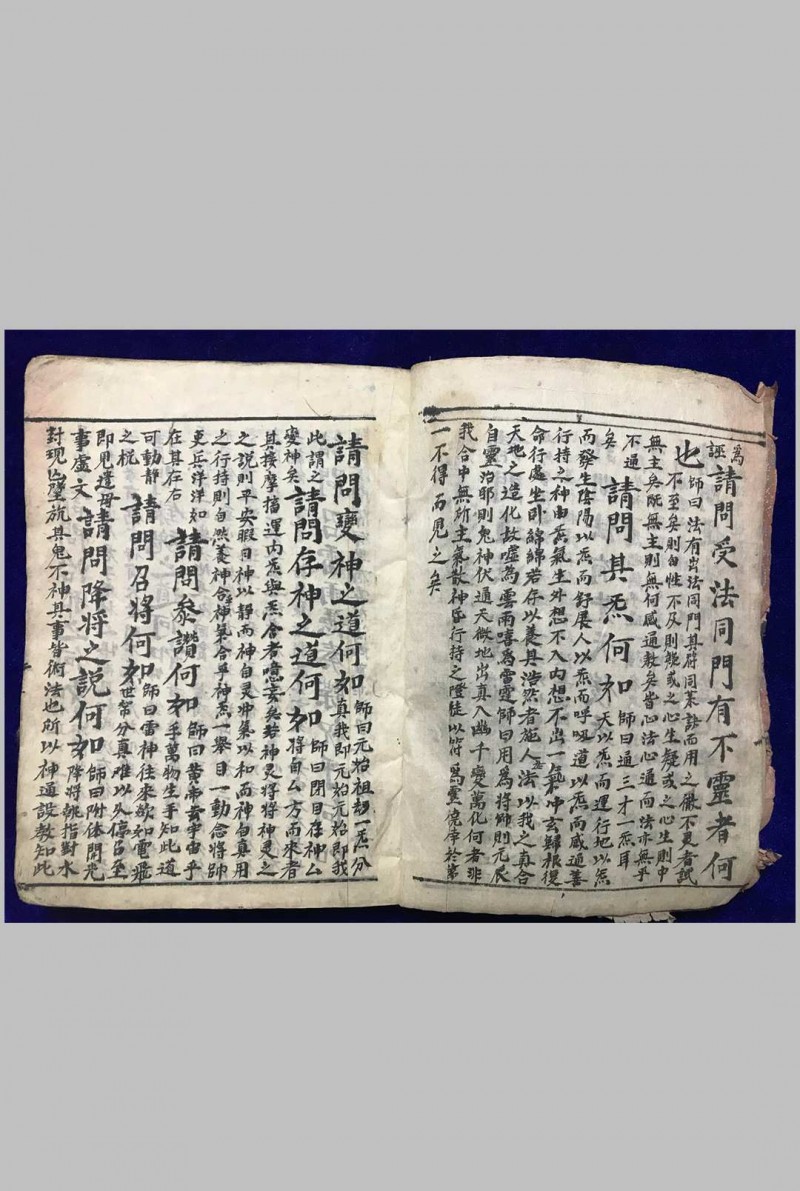 萬
誣請問受法同門有不靈者何
也師曰法有出法同門其辟同茶訣而用之徹不灵者試
不至矣則自性不及則能或之心生疑或之心生則中
無主矣既無主則無何感通教矣皆心法心通而法亦無乎
不通
矣請問其炁何如師曰通三才一炁耳
天以炁而運行地以炁
而發生陰陽以炁而舒展人以炁而呼吸道以炁而感通善
行持之神由炁氣生外想不入内想不出一氣冲玄歸根復
命行處坐卧綿綿若存以養其浩然者施人法以我之真合
天地之造化故噓為雲雨嘻為雷霆師曰用為將師則元辰
自靈治耶則鬼神伏通天徹地出真入幽千變萬化何者非
我合中無所主氣散神昏行持之際徒以符為靈僥倖於萬
一不得而見之矣
請問變神之道何如師曰元始祖刼一炁分
真我即元始元始即我
此謂之
變神矣請問存神之道何如師曰閉目存神厶
將自厶方而來者
其按摩描運内炁與炁合者噫妄矣若神灵將將神灵之
之說則平安暇日神以靜而神自灵冲集以和而神自真用
之行持則自然養神合神氣合乎神炁一舉目一動念將帥
吏兵洋洋如
在其在右請問叅讚何如師曰黄帝云宇宙乎
手萬物生乎知此道
可動靜
之机請問召將何如師曰雷神往來欻如電飛
世常分真难以久停召至
即見遣毋
事虛文請問降將之說何如師曰附体開光
降將執指對水
對現巫壁旂其鬼不神其事皆術法也所以神通設教知此